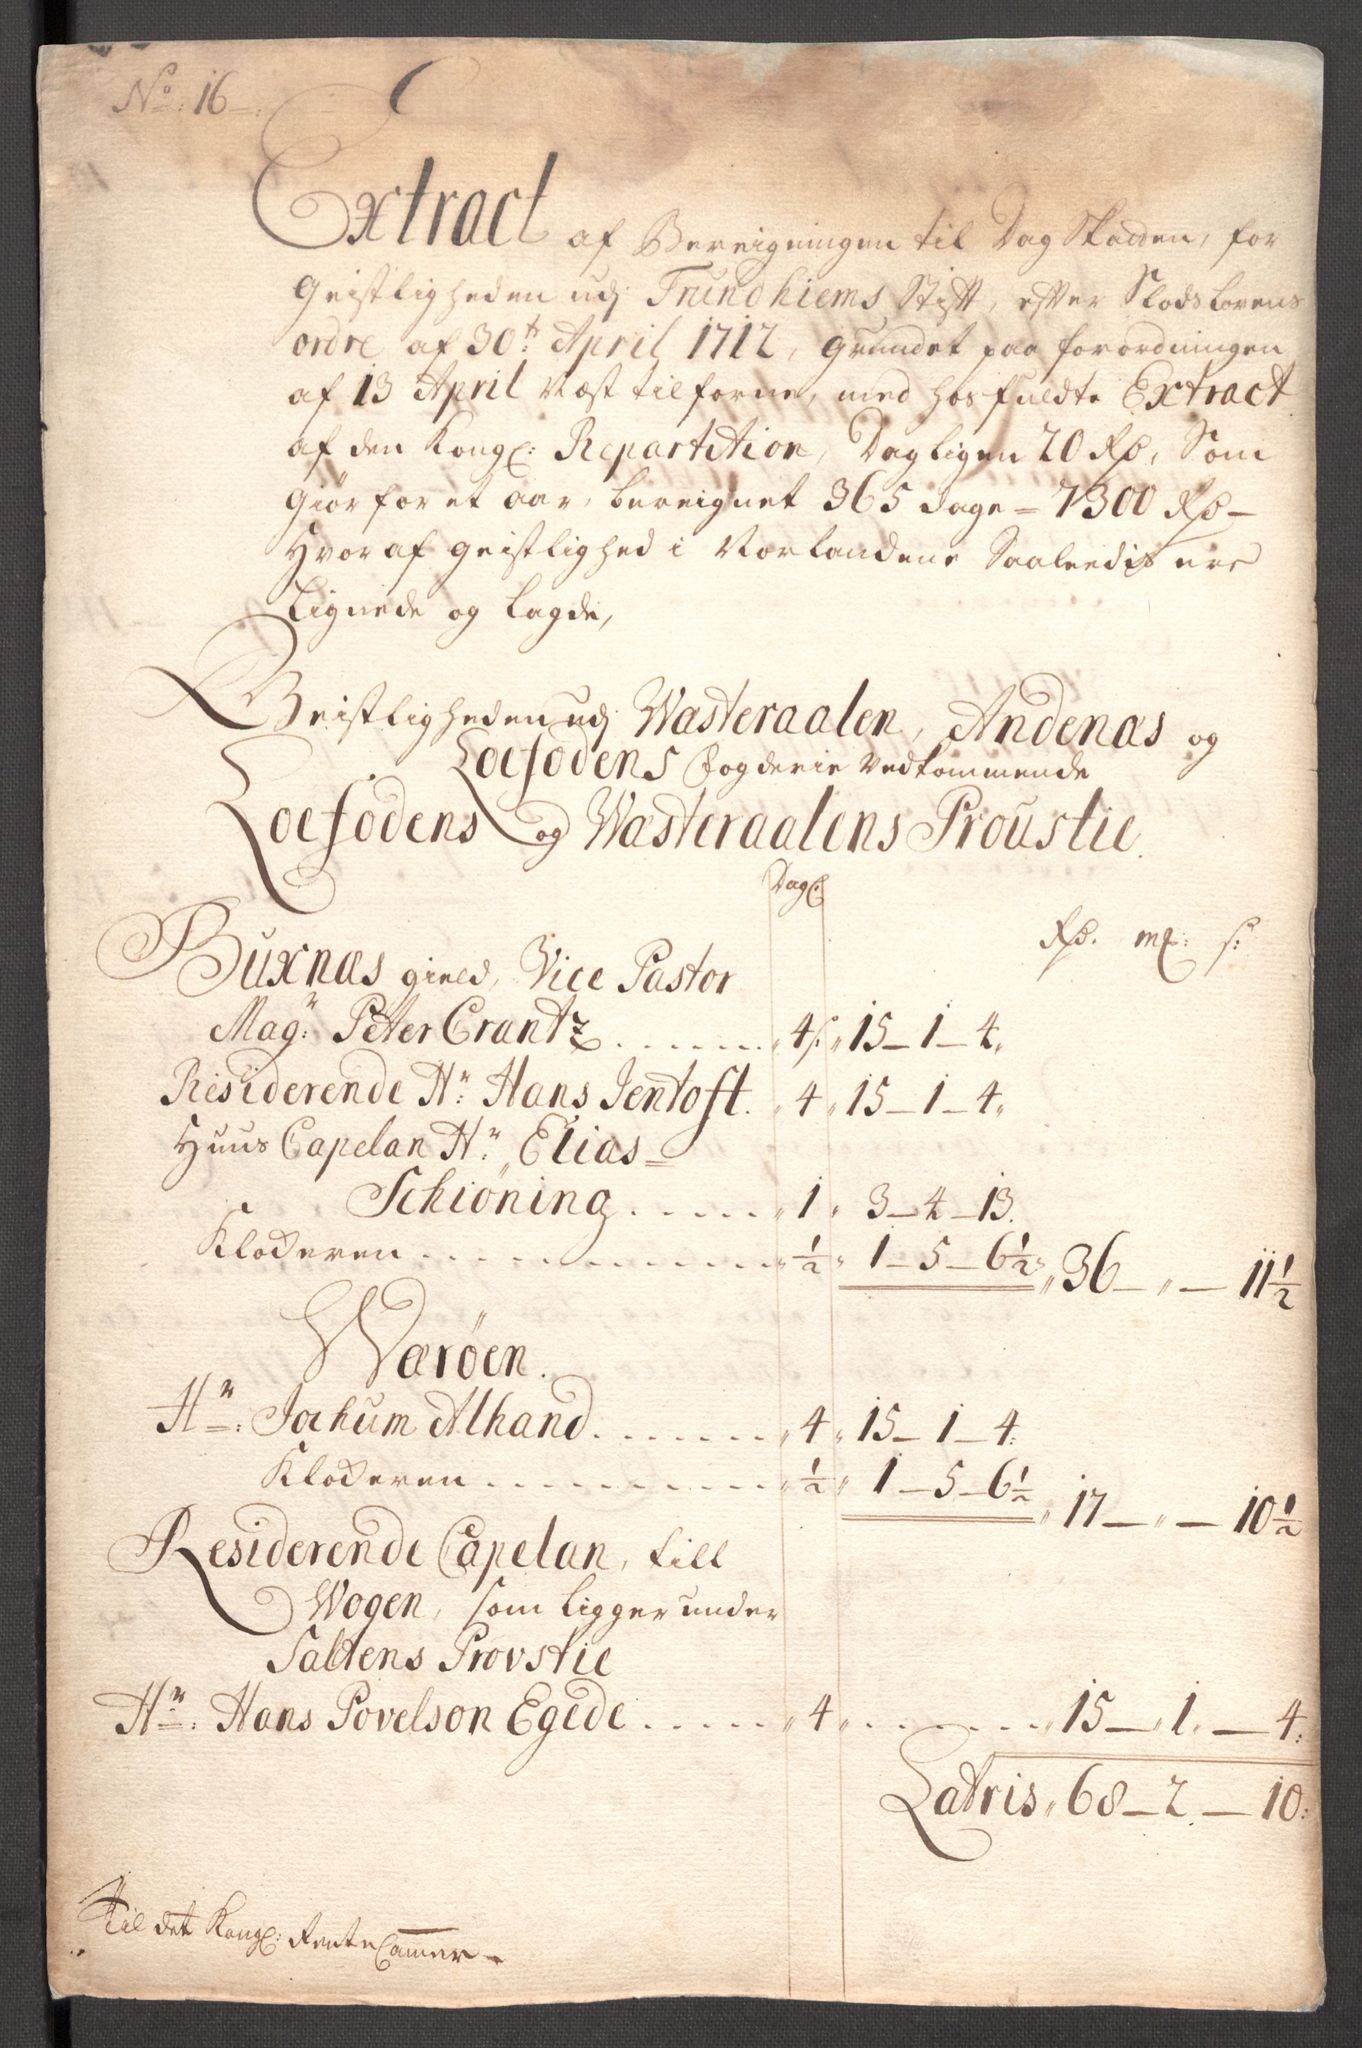 No: 16
Extract af Bereigningen til Dag Skatten, for
Geistligheden udj Trundhiems Stifft, efter Slodslovens
ordre af 30t: April 1712, grundet paa forordningen
af 13 April næst tilforne, med hosfuldte Extract
af den Kongl: Repartition, Dagligen 20 Rd, Som
giør for et aar, bereignet 365 dage = 7300 Rd
Hvoraf geistlighed i Norlandene Saaleedis ere
Lignede og lagde,
Geistligheden udj Wæsteraalen, Andenæs og
Loefodens fogderie Vedkommende
Loefodens og Wæsteraalens Proustie.
Dagl:
Rd. mk: s:
Buxnæs gield, Vice Pastor
Magr: Peter Crantz ...... 4 s: 15 - 1 - 4
Residerende Hr: Hans Jentoft. 4 15 - 1 - 4
Huus Capelan Hr: Elias
Schiøning ..... 1 3 - 4 - 13.
Klokeren ........... ½ 1 - 5 - 6½ 36 - " - 11½
Værøen.
Hr: Jochum Alhand ...... 4 15 - 1 - 4:
Klokeren .......... ½ 1 - 5 - 6½ 17 - " - 10½
Residerende Capelan, till
Wogen, som ligger under
Saltens Provstie
Hr: Hans Povelson Egede ..... 4 ....... 15 - 1 - 4:
Latris 68 - 2 - 10:
Til det Kongl: Rente Cammer